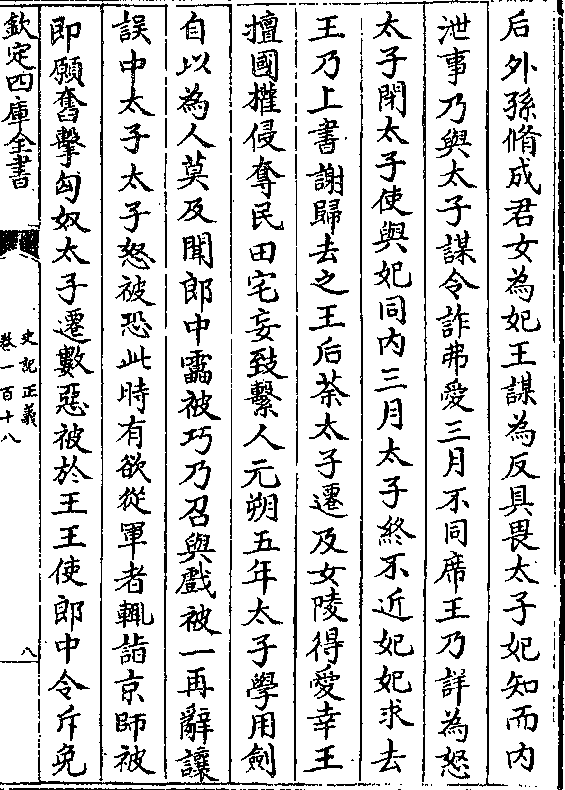 后外孫脩成君女為妃王謀為反具畏太子妃知而内
泄事乃與太子謀令詐弗愛三月不同席王乃詳為怒
太子閉太子使與妃同内三月太子終不近妃妃求去
王乃上書謝歸去之王后荼太子遷及女陵得愛幸王
擅國權侵奪民田宅妄致繫人元朔五年太子學用劍
自以為人莫及聞郎中靁被巧乃召與戲被一再辭讓
誤中太子太子怒被恐此時有欲從軍者輒詣京師被
即願奮擊匈奴太子遷數惡被於王王使郎中令斥免
欽定四庫全書
史記正義
卷一百十八
八